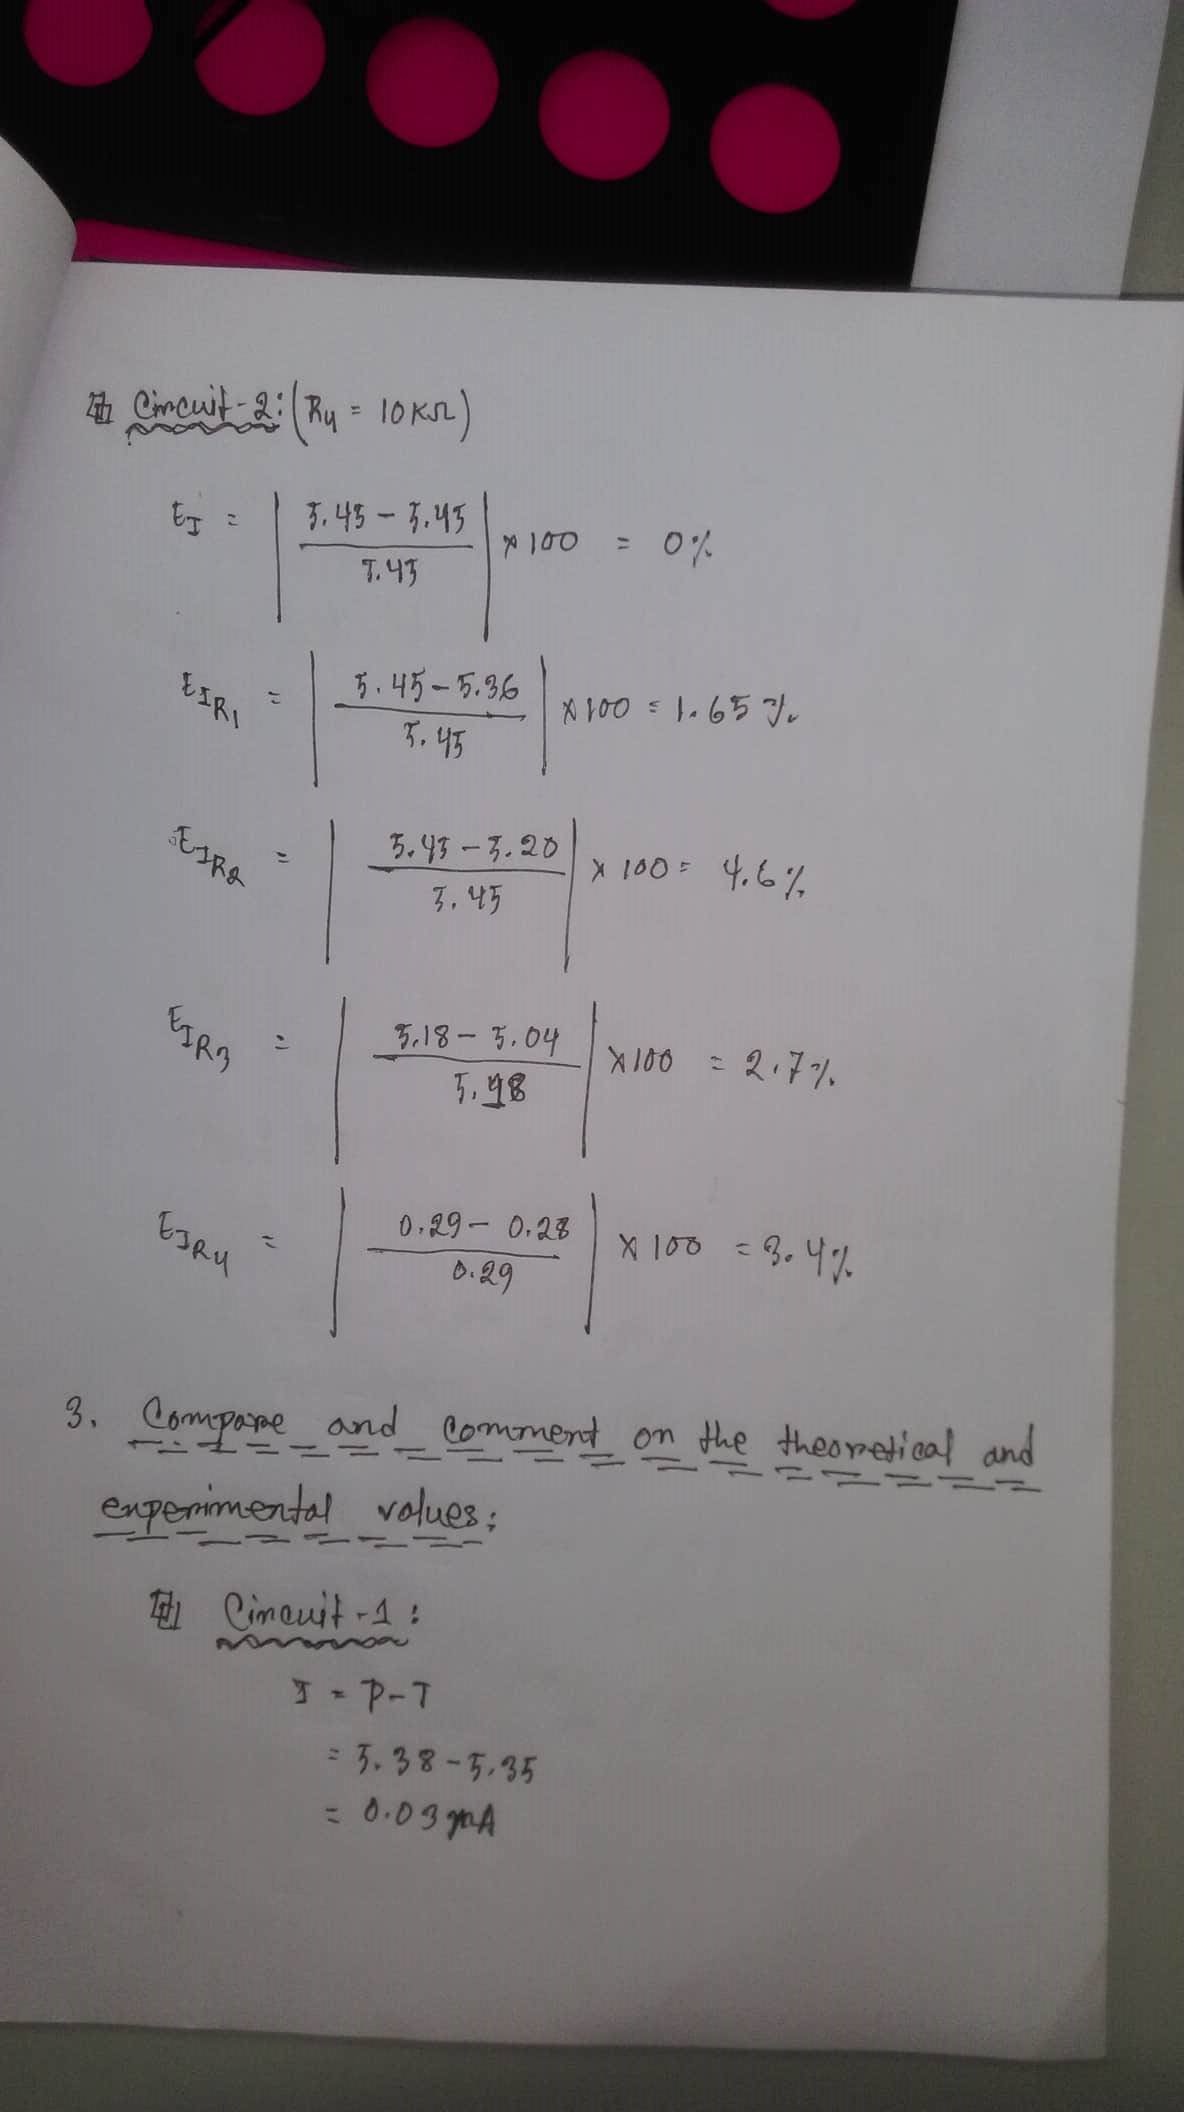 Circuit-2: (R4 = 10KΩ)
E_I = | 5.45 - 5.45 / 5.45 | × 100 = 0%
E_IR1 = | 5.45 - 5.36 / 5.45 | × 100 = 1.65%
E_IR2 = | 5.45 - 5.20 / 5.45 | × 100 = 4.6%
E_IR3 = | 5.18 - 5.04 / 5.18 | × 100 = 2.7%
E_IR4 = | 0.29 - 0.28 / 0.29 | × 100 = 3.4%
3. Compare and comment on the theoretical and
experimental values:
Circuit-1:
I = P-T
= 5.38 - 5.35
= 0.03 mA